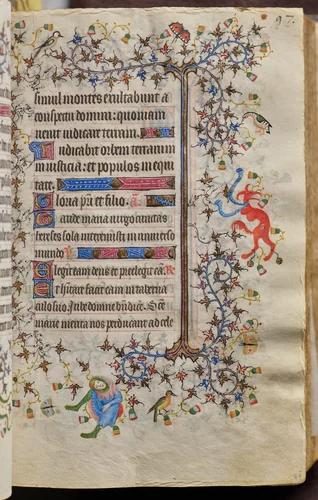 97
simul montes exultabunt a
conspectu domini: quoniam
uenit iudicare terram.
Iudicabit orbem terrarum
in iusticia: et populos in equi
tate.
Gloria pri et filio.
Gaude maria uirgo cunctas
hereses sola interemisti in uniuerso
mundo.
Elegit eam deus et preelegit eā. R
Et habitare facit eam in taberna
culo suo. Iube domne bn̄dicē. Sce
marie
nos